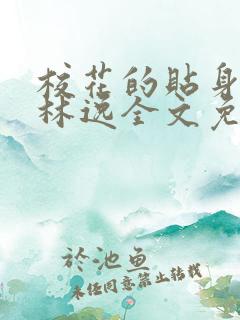 校花的贴身
林逸全文免
於池鱼
未经同意禁止转载